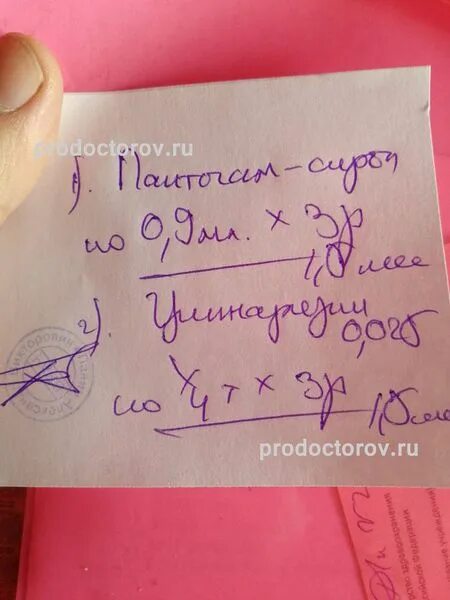 prodoctorov.ru
1). Пантогам-сироп
по 0,9 мл. х 3р
1,5 мес
2). Циннаризин
0,025
по 1/4 т х 3р
1,5 мес
prodoctorov.ru